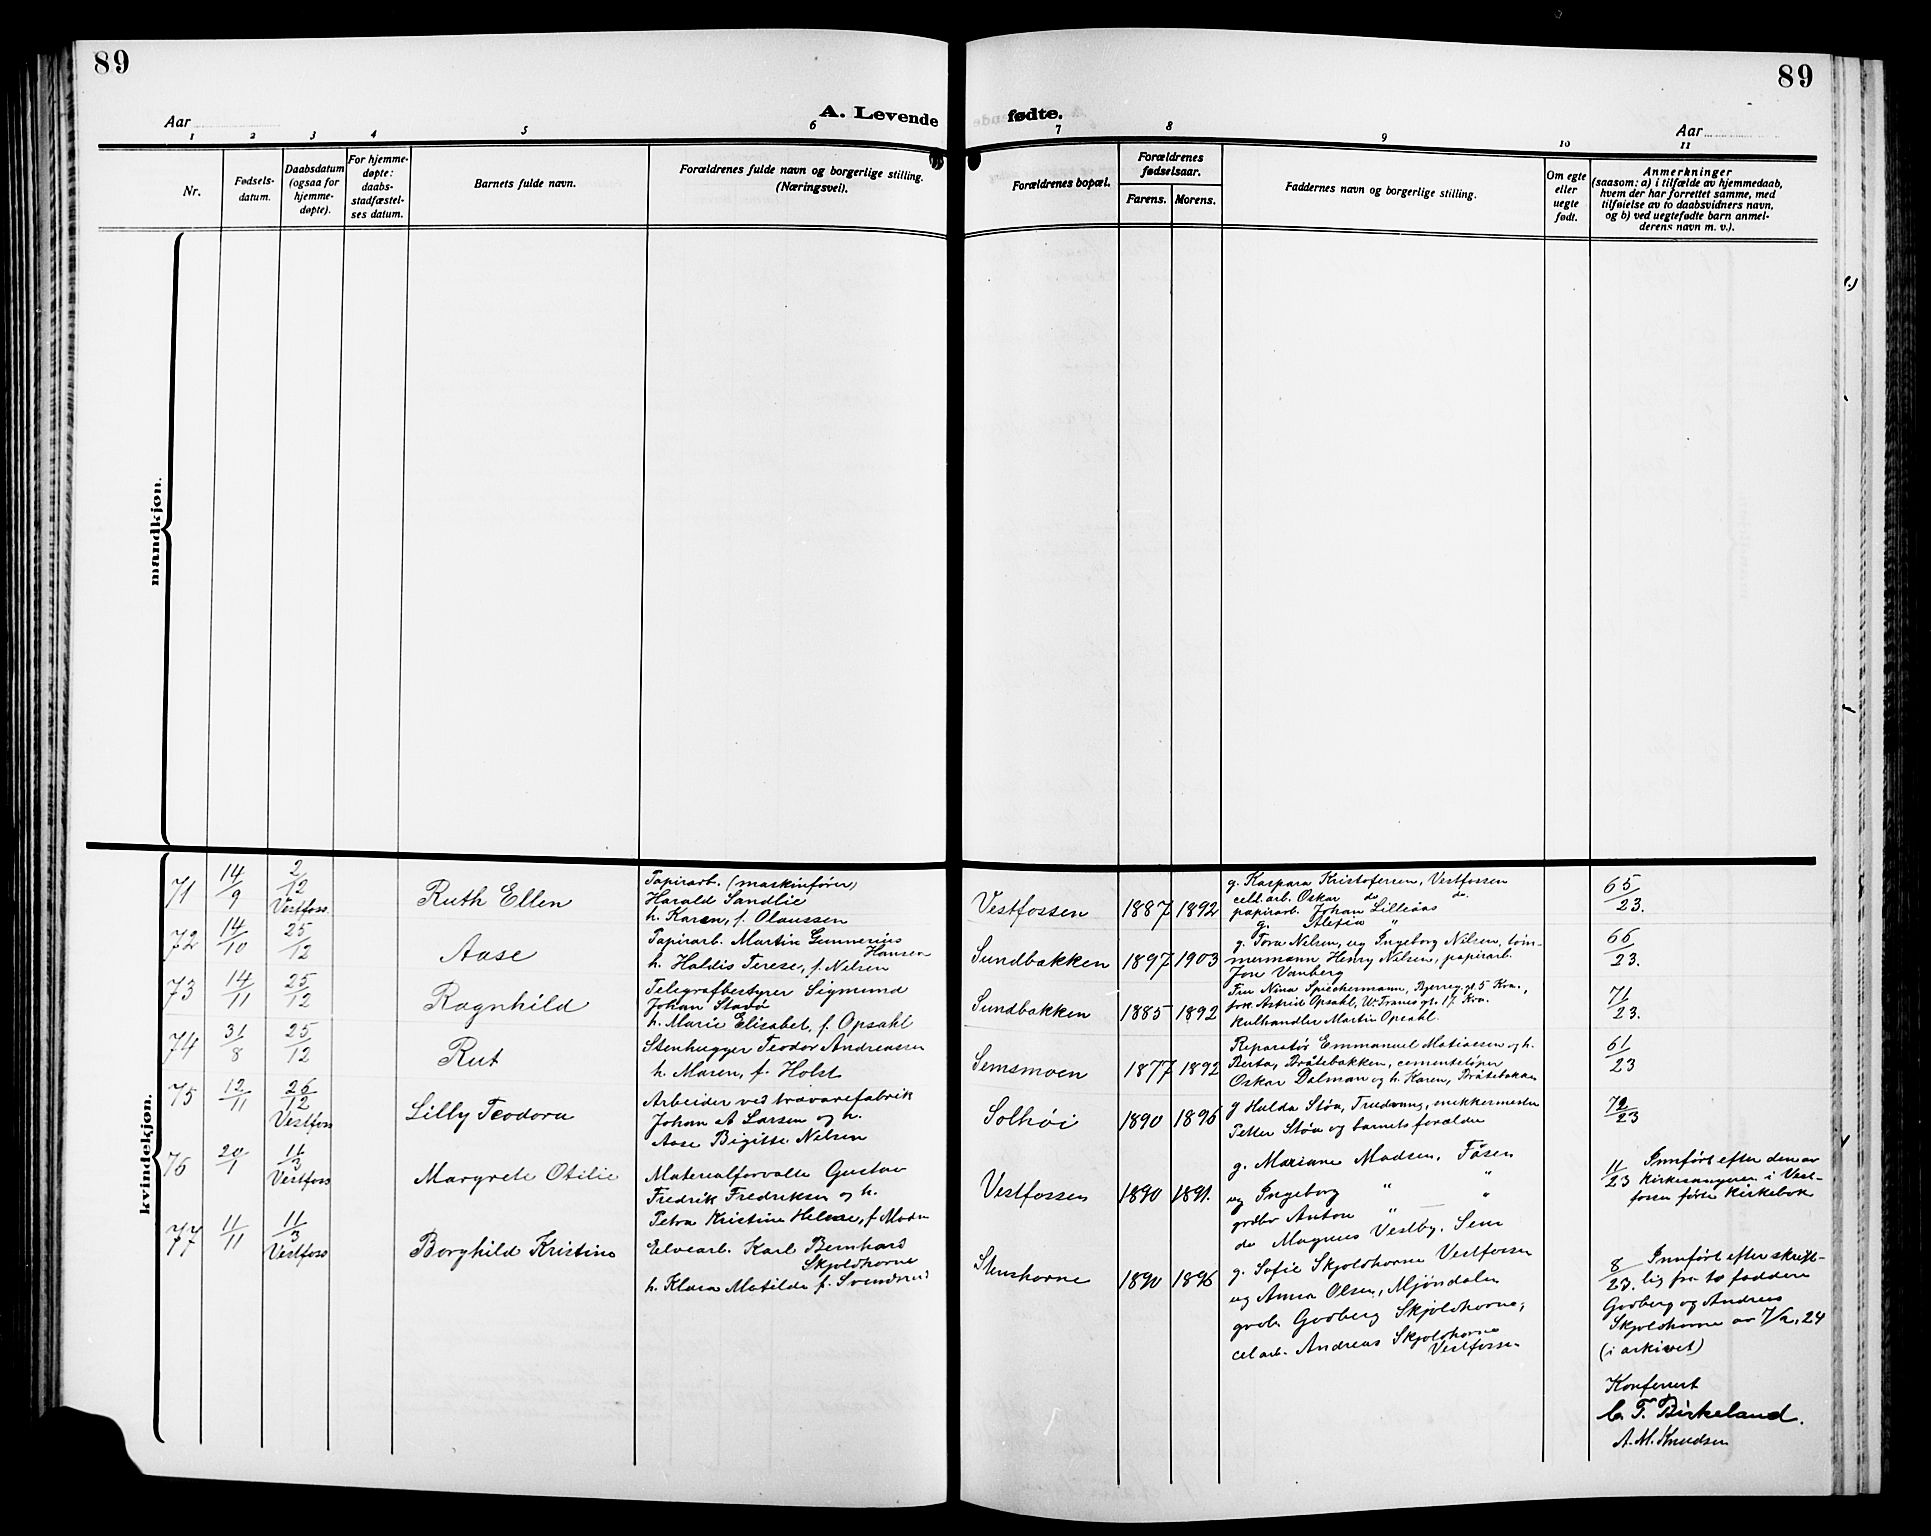 89
89
A. Levende fødte.
Aar
Aar
1 2 3 4 5 6 7 8 9 10 11
Nr.
Fødsels-
datum.
Daabsdatum
(ogsaa for
hjemme-
døpte).
For hjemme-
døpte:
daabs-
stadfæstel-
ses datum.
Barnets fulde navn.
Forældrenes fulde navn og borgerlige stilling.
(Næringsvei).
Forældrenes bopæl.
Forældrenes
fødselsaar.
Farens. Morens.
Faddernes navn og borgerlige stilling.
Om egte
eller
uegte
født.
Anmerkninger
(saasom: a) i tilfælde av hjemmedaab,
hvem der har forrettet samme, med
tilføielse av to daabsvidners navn,
og b) ved uegtefødte barn anmel-
derens navn m. v.).
mandkjøn.
kvindekjøn.
71 14/9 2/12 Vestfoss Ruth Ellen
Papirarb. (maskinfører)
Harald Sandlie
h. Karen, f. Olaussen
Vestfossen 1887 1892
g. Kaspara Kristofersen, Vestfossen
cell. arb. Oskar do do.
papirarb. Johan Lilleaas
g. "
65/23.
72 14/10 25/12 Aase
Papirarb. Martin Gunnerius
Hansen
h. Haldis Terese, f. Nelsen
Sundbakken 1897 1903
g. Tora Nelsen, ug Ingeborg Nilsen, tøm-
mermann Henry Nelsen, papirarb.
Jon Vamberg
66/23.
73 14/11 25/12 Ragnhild
Telegrafbestyrer Sigmund
Johan Stavø
h. Marie Elisabet, f. Opsahl
Sundbakken 1885 1892
Fru Nina Spiechermann, Bjerreg. gt. 5 Kra.,
frk. Astrid Opsahl, W. Tranes gt. 17. Kra.
Kulhandler Martin Opsahl.
71/23.
74 31/8 25/12 Rut
Stenhugger Teodor Andreassen
h. Maren, f. Holst
Semsmoen 1877 1892
Reparatør Emmanuel Matiassen og h.
Berta, Bråtebakken, cementstøper
Oskar Dalman og h. Karen, Bråtebakken
61/23
75 12/11 26/12 Vestfoss Lilly Teodora
Arbeider ved trævarefabrik
Johan A Larsen og h.
Aase Birgitte Nelsen
Solhøi 1890 1896
g Hulda Støa, Trudvang, snekkermester
Petter Støa og barnets forældre
72/23
76 20/1 11/3 Vestfoss Margrete Otilie
Materialforvalte Gustav
Fredrik Fredriksen og h.
Petra Kristine Helene, f. Mads
Vestfossen 1890 1891.
g. Mariane Madsen, Fåsen
ug Ingeborg " "
grdbr Anton " "
do Magnus Vestby, Sem
11/23 Innført efter den av
Kirkesangeren i Vest-
fossen førte Kirkebok
77 11/11 11/3 Vestfoss Borghild Kristine
Elvearb. Karl Bernhard
Skjoldhorne
h. Klara Matilde f. Svendsrud
Stenshorne 1890 1896
g. Sofie Skjoldhorne Vestfossen
ug Anna Olsen, Mjøndalen
grdb. Godberg Skjoldhorne,
cel arb. Andreas Skjoldhorne
Vestfossen
8/23. Innført efter skrift-
lig fra to faddere
Godberg og Andreas
Skjoldhorne av 7/2, 24
(i arkivet)
Konferert
C. T. Birkeland.
A. M. Knudsen